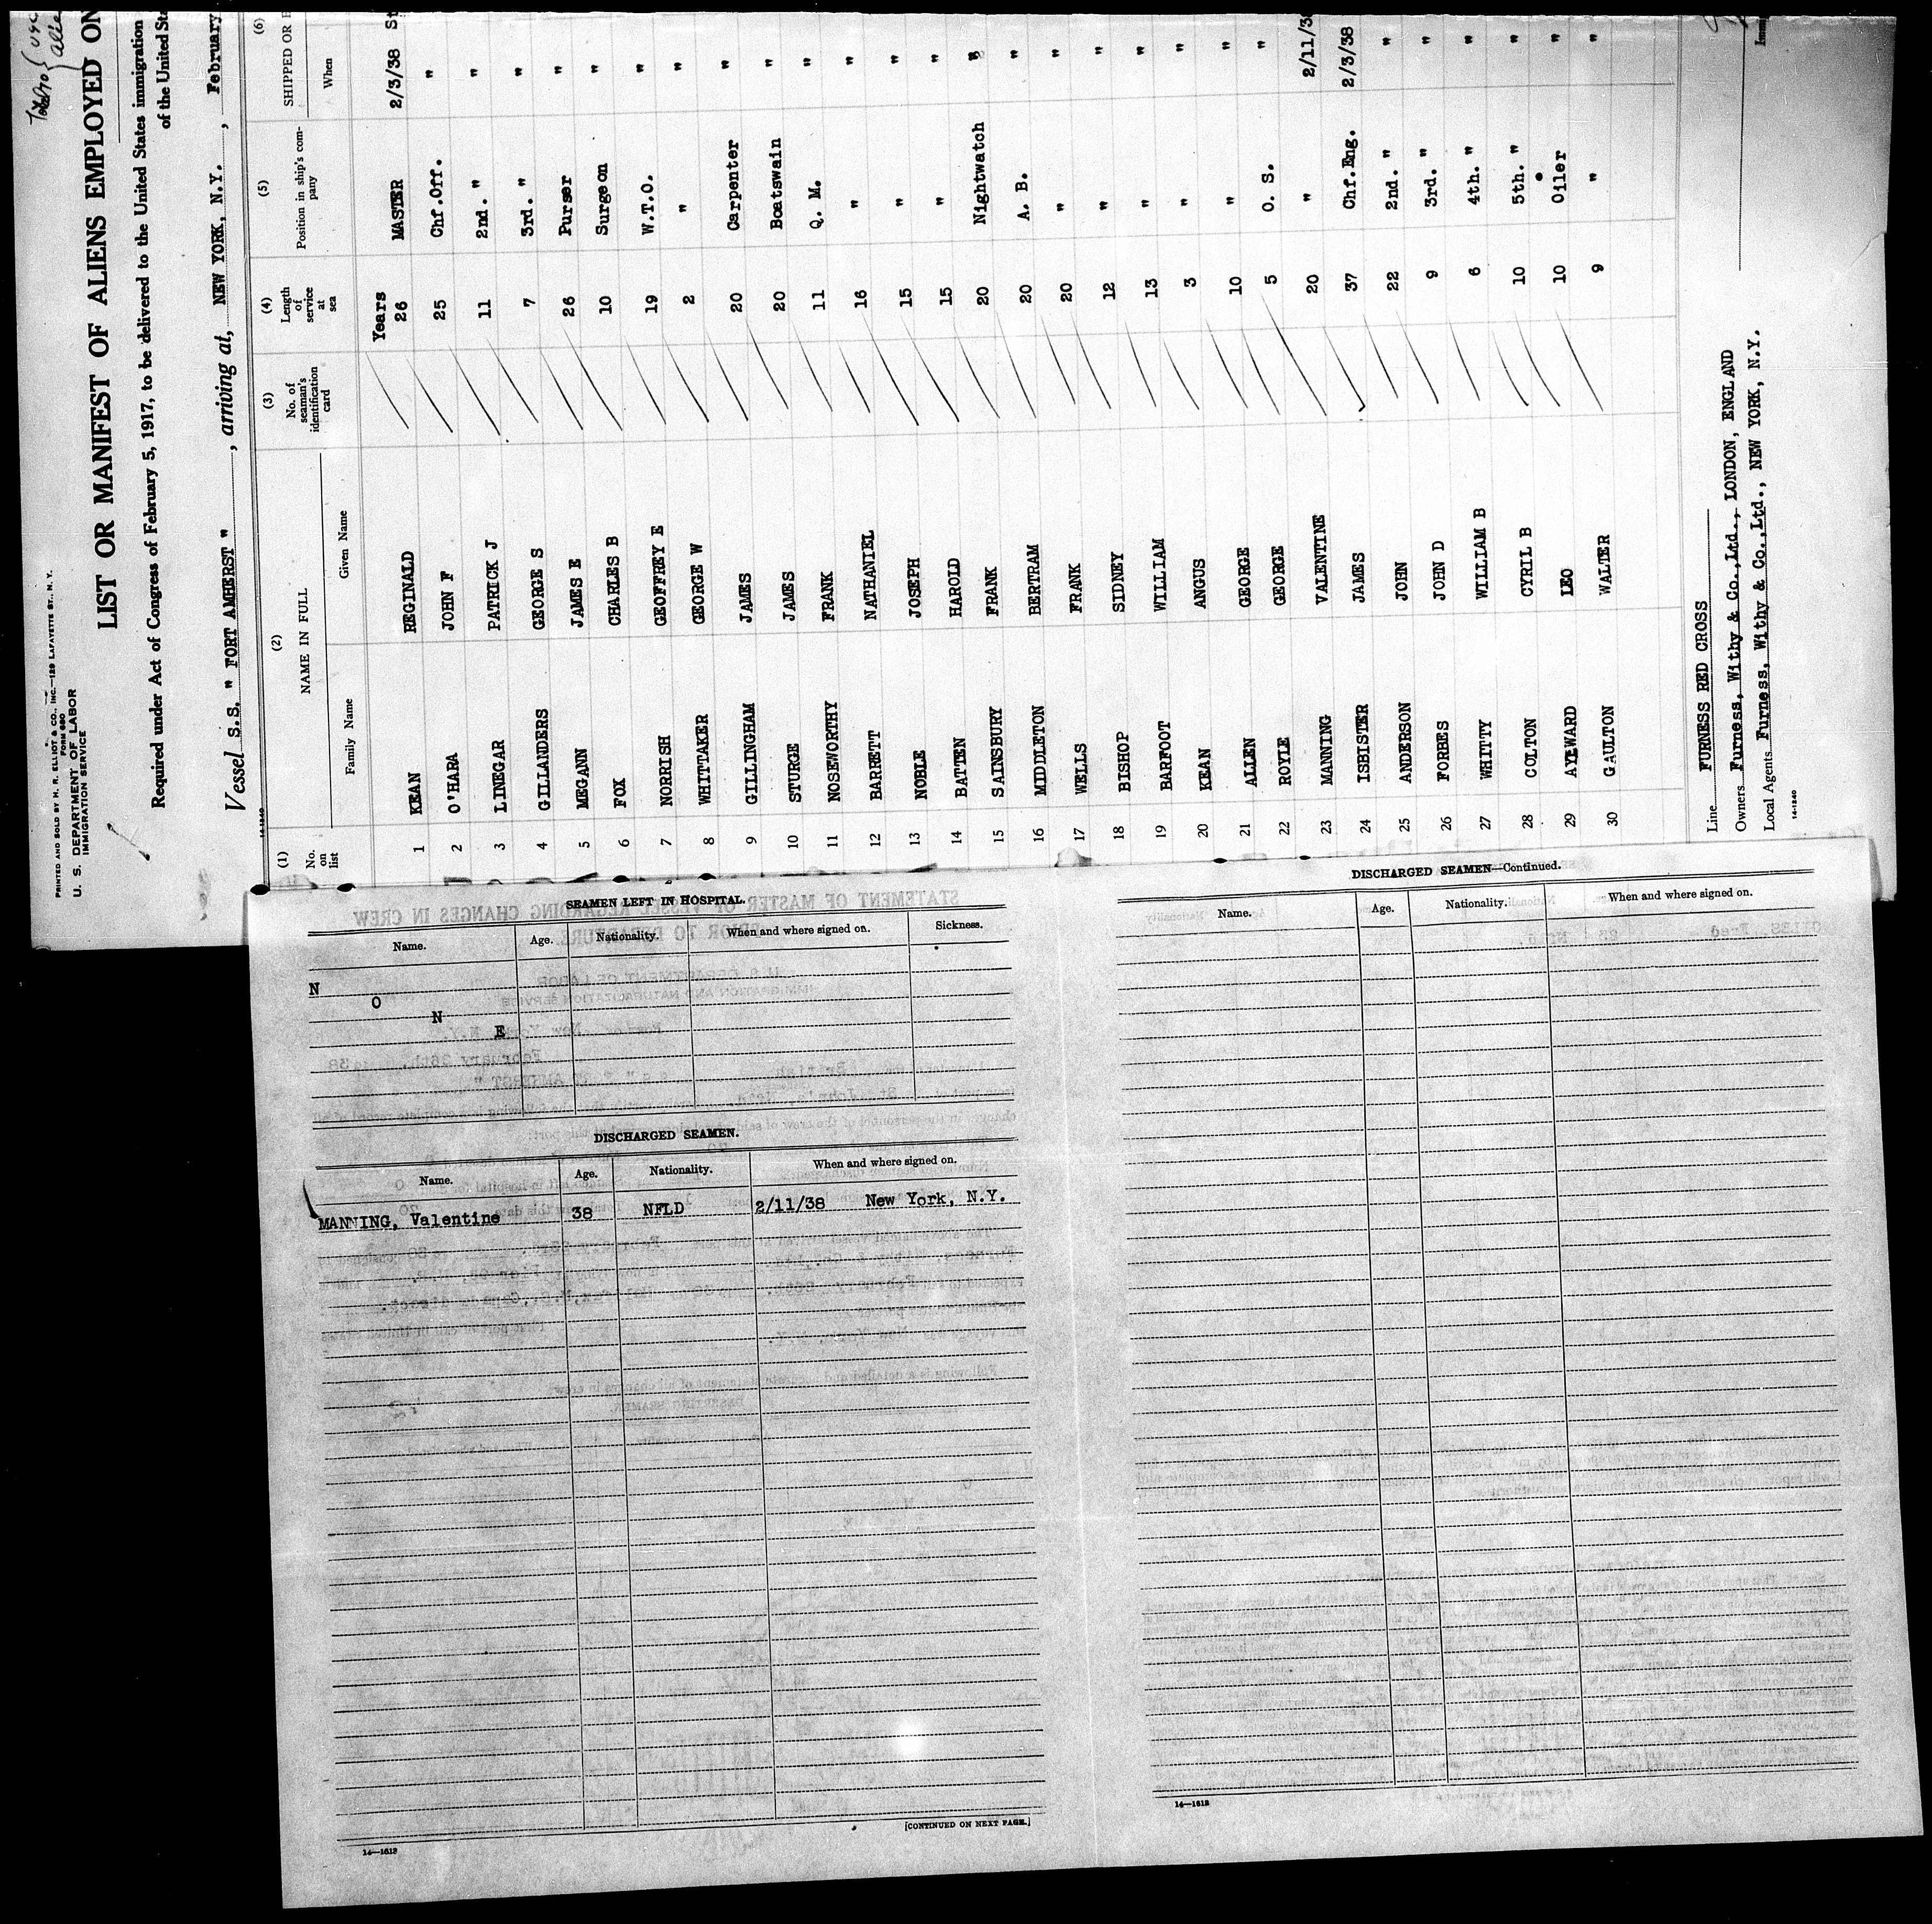 PRINTED AND SOLD BY H. R. ELLIOT & CO., INC.—129 LAFAYETTE ST., N. Y.
FORM 680
U. S. DEPARTMENT OF LABOR
IMMIGRATION SERVICE
LIST OR MANIFEST OF ALIENS EMPLOYED ON
Required under Act of Congress of February 5, 1917, to be delivered to the United States immigration
of the United
Vessel S.S. " FORT AMHERST " , arriving at, NEW YORK, N.Y. , February
14-1240
(1) (2) (3) (4) (5) (6)
No. on list NAME IN FULL No. of seaman's identification card Length of service at sea Position in ship's company SHIPPED OR
Family Name Given Name When
Years
1 KEAN REGINALD 26 MASTER 2/3/38 St
2 O'HARA JOHN F 25 Chf.Off. "
3 LINEGAR PATRICK J 11 2nd. " "
4 GILLANDERS GEORGE S 7 3rd. " "
5 MEGANN JAMES E 26 Purser "
6 FOX CHARLES B 10 Surgeon "
7 NORRISH GEOFFREY E 19 W.T.O. "
8 WHITTAKER GEORGE W 2 " "
9 GILLINGHAM JAMES 20 Carpenter "
10 STURGE JAMES 20 Boatswain "
11 NOSEWORTHY FRANK 11 Q. M. "
12 BARRETT NATHANIEL 16 " "
13 NOBLE JOSEPH 15 " "
14 BATTEN HAROLD 15 " "
15 SAINSBURY FRANK 20 Nightwatch "
16 MIDDLETON BERTRAM 20 A. B. "
17 WELLS FRANK 20 " "
18 BISHOP SIDNEY 12 " "
19 BARFOOT WILLIAM 13 " "
20 KEAN ANGUS 3 " "
21 ALLEN GEORGE 10 " "
22 ROYLE GEORGE 5 O. S. "
23 MANNING VALENTINE 20 " 2/11/3
24 ISBISTER JAMES 37 Chf.Eng. 2/3/38
25 ANDERSON JOHN 22 2nd. " "
26 FORBES JOHN D 9 3rd. " "
27 WHITTY WILLIAM B 6 4th. " "
28 COLTON CYRIL B 10 5th. " "
29 AYLWARD LEO 10 Oiler "
30 GAULTON WALTER 9 " "
Line FURNESS RED CROSS
Owners Furness, Withy & Co.,Ltd., LONDON, ENGLAND
Local Agents Furness, Withy & Co.,Ltd., NEW YORK, N.Y.
14-1240
SEAMEN LEFT IN HOSPITAL.
Name. Age. Nationality. When and where signed on. Sickness.
N
O
N
E
DISCHARGED SEAMEN.
Name. Age. Nationality. When and where signed on.
MANNING, Valentine 38 NFLD 2/11/38 New York, N.Y.
[CONTINUED ON NEXT PAGE.]
14—1613
DISCHARGED SEAMEN—Continued.
Name. Age. Nationality. When and where signed on.
14—1613